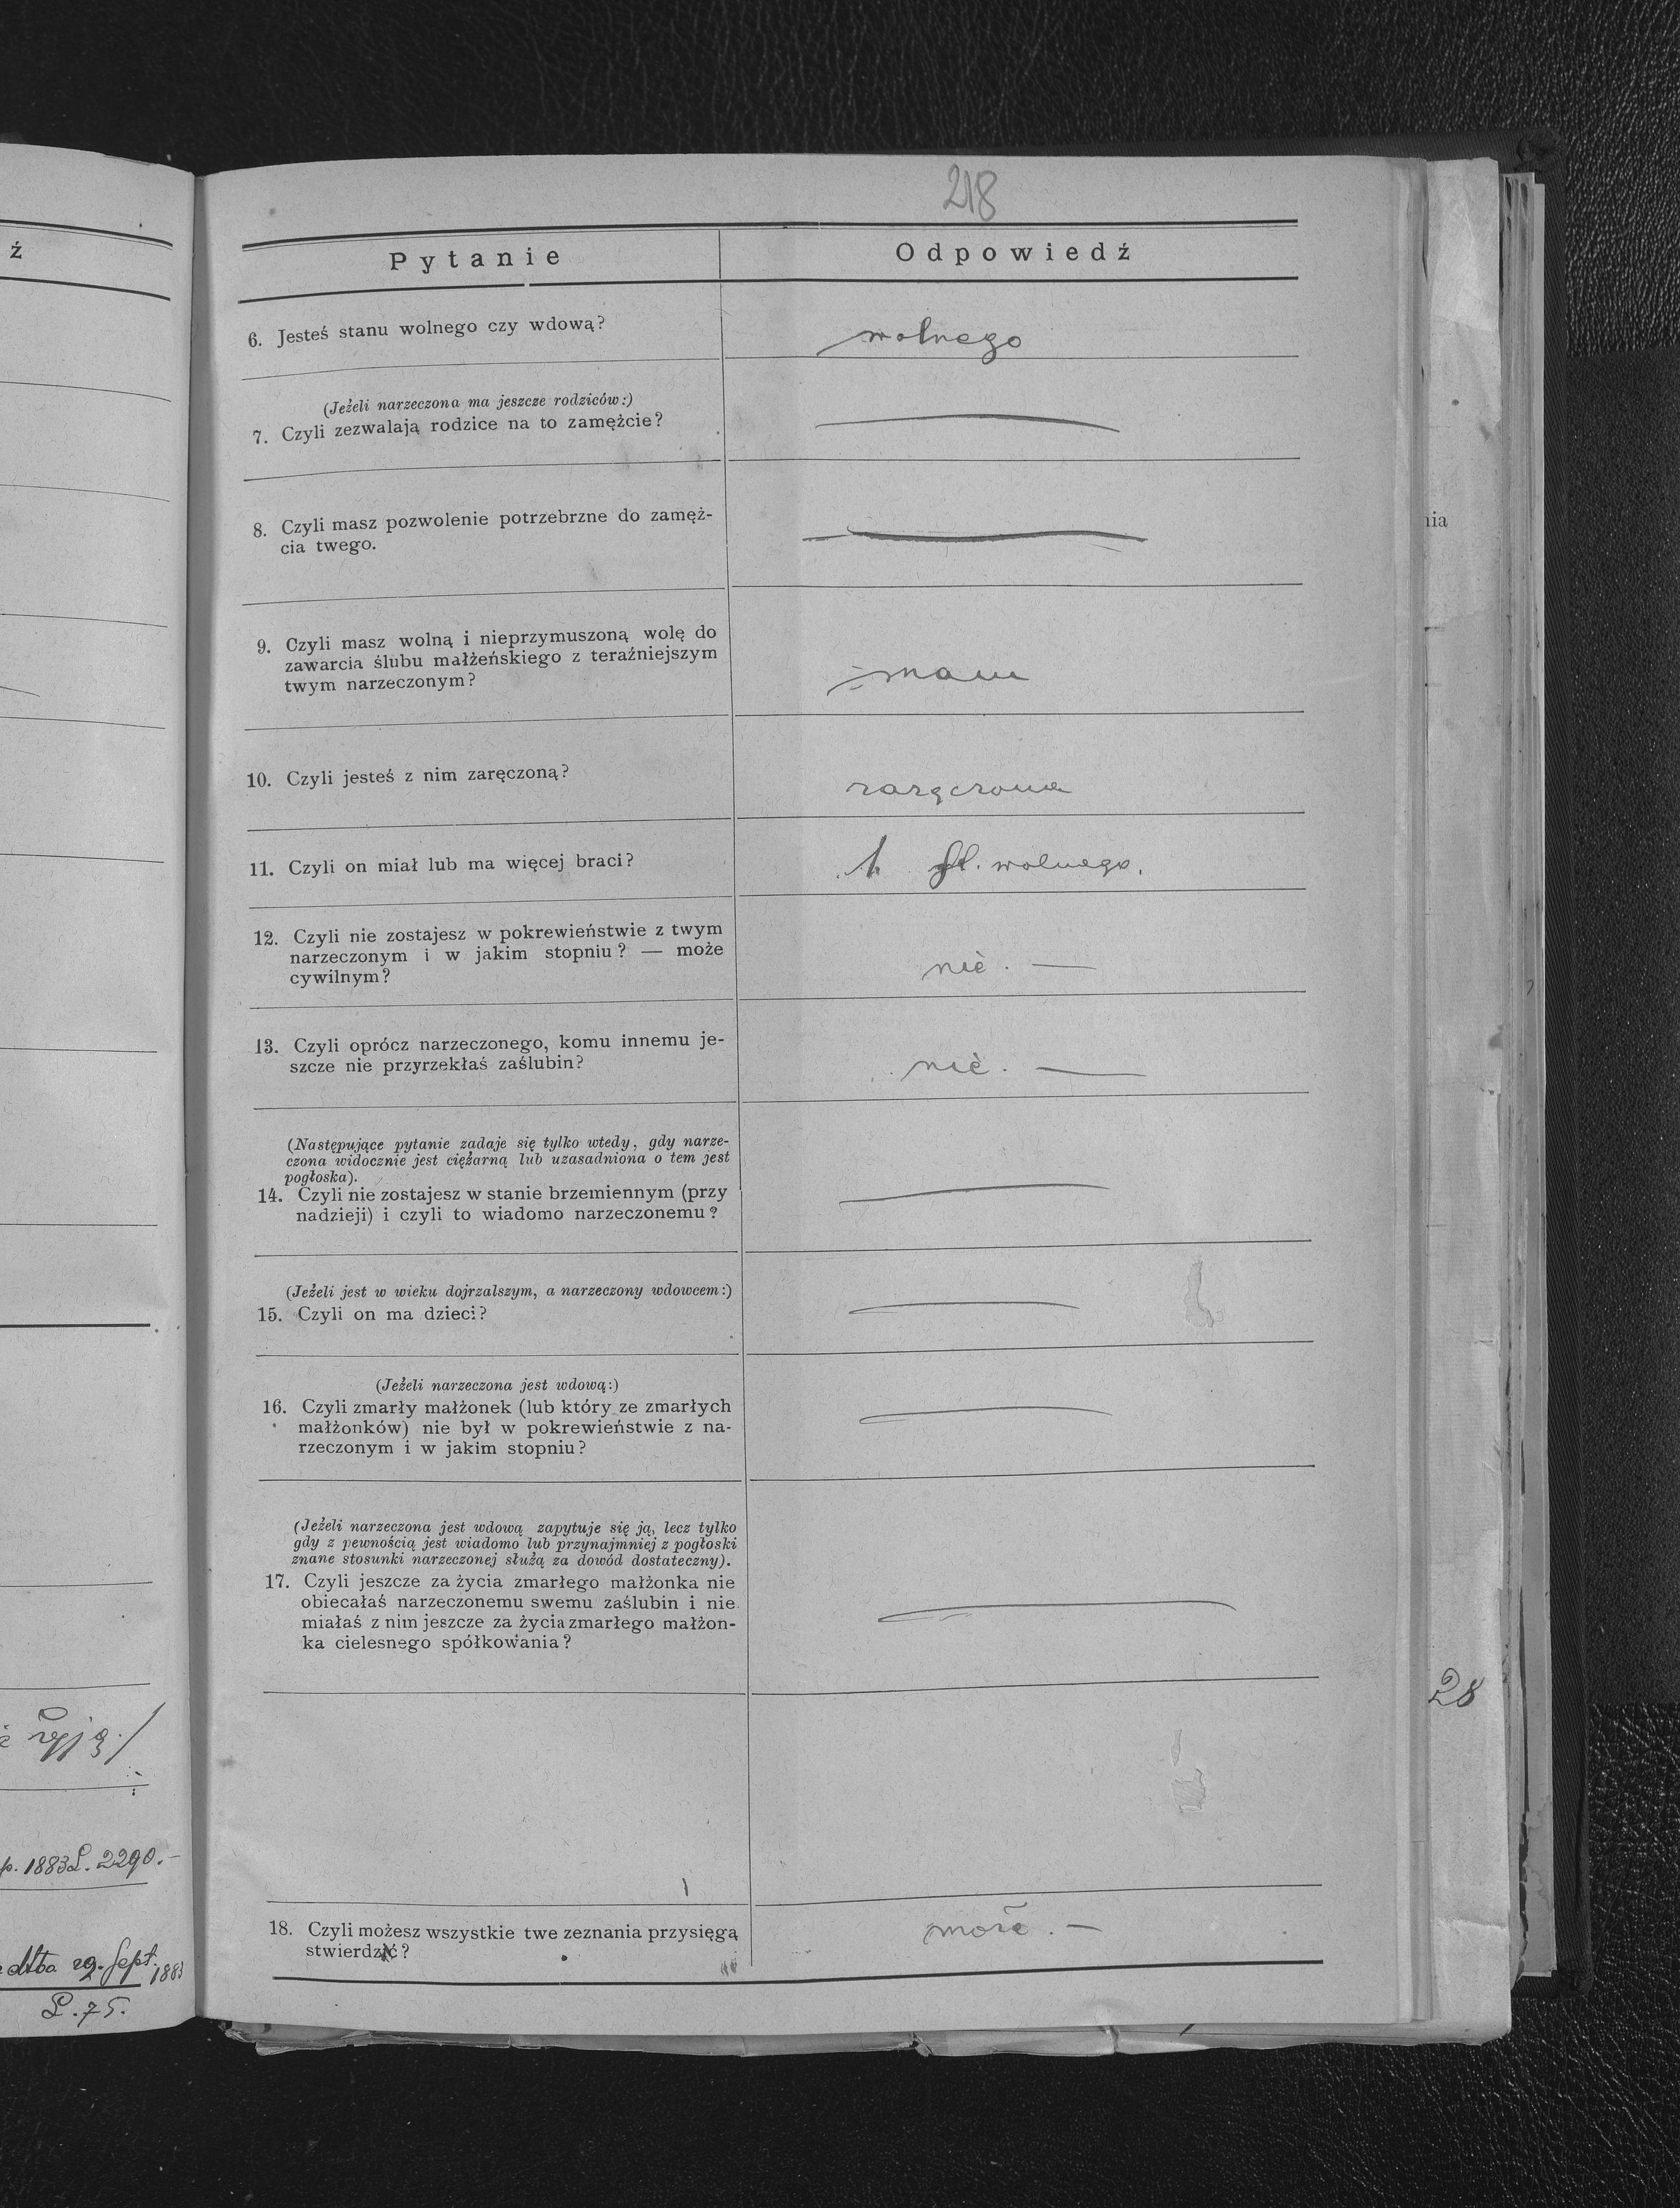 218
ź
Pytanie
Odpowiedź
6. Jesteś stanu wolnego czy wdową?
wolnego
(Jeżeli narzeczona ma jeszcze rodziców:)
7. Czyli zezwalają rodzice na to zamężcie?
8. Czyli masz pozwolenie potrzebrzne do zamęż-
cia twego.
nia
9. Czyli masz wolną i nieprzymuszoną wolę do
zawarcia ślubu małżeńskiego z teraźniejszym
twym narzeczonym?
mam
10. Czyli jesteś z nim zaręczoną?
zaręczona
11. Czyli on miał lub ma więcej braci?
1. st. wolnego.
12. Czyli nie zostajesz w pokrewieństwie z twym
narzeczonym i w jakim stopniu? — może
cywilnym?
nie. —
13. Czyli oprócz narzeczonego, komu innemu je-
szcze nie przyrzekłaś zaślubin?
nie. —
(Następujące pytanie zadaje się tylko wtedy, gdy narze-
czona widocznie jest ciężarną lub uzasadniona o tem jest
pogłoska).
14. Czyli nie zostajesz w stanie brzemiennym (przy
nadzieji) i czyli to wiadomo narzeczonemu?
(Jeżeli jest w wieku dojrzalszym, a narzeczony wdowcem:)
15. Czyli on ma dzieci?
(Jeżeli narzeczona jest wdową:)
16. Czyli zmarły małżonek (lub który ze zmarłych
małżonków) nie był w pokrewieństwie z na-
rzeczonym i w jakim stopniu?
(Jeżeli narzeczona jest wdową zapytuje się ją, lecz tylko
gdy z pewnością jest wiadomo lub przynajmniej z pogłoski
znane stosunki narzeczonej służą za dowód dostateczny).
17. Czyli jeszcze za życia zmarłego małżonka nie
obiecałaś narzeczonemu swemu zaślubin i nie
miałaś z nim jeszcze za życia zmarłego małżon-
ka cielesnego spółkowania?
28
p. 1883 L. 2290.—
18. Czyli możesz wszystkie twe zeznania przysięgą
stwierdzić?
może. —
29. Sept. 1883
L. 75.